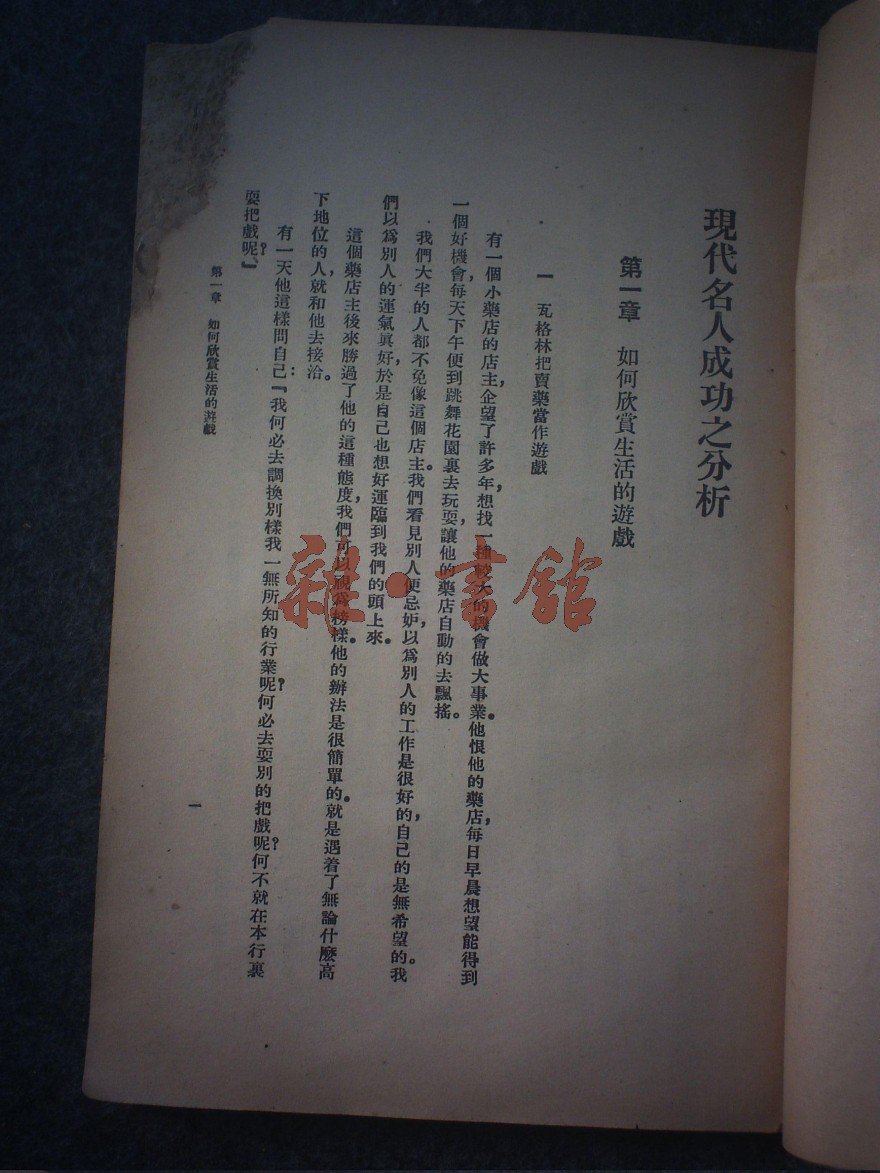 現代名人成功之分析
第一章　如何欣賞生活的遊戲
一　瓦格林把賣藥當作遊戲
有一個小藥店的店主，企望了許多年，想找一種較大的機會做大事業。他恨他的藥店，每日早晨想望能得到
一個好機會，每天下午便到跳舞花園裏去玩耍，讓他的藥店自動的去飄搖。
我們大半的人都不免像這個店主。我們看見別人便忌妒，以爲別人的工作是很好的，自己的是無希望的。我
們以爲別人的運氣眞好，於是自己也想好運臨到我們的頭上來。
這個藥店主後來勝過了他的這種態度，我們可以視爲榜樣。他的辦法是很簡單的。就是遇着了無論什麼高
下地位的人，就和他去接洽。
有一天他這樣問自己：『我何必去調換別樣我一無所知的行業呢？何必去耍別的把戲呢？何不就在本行裏
耍把戲呢？』
第一章　如何欣賞生活的遊戲
一
雜·書館